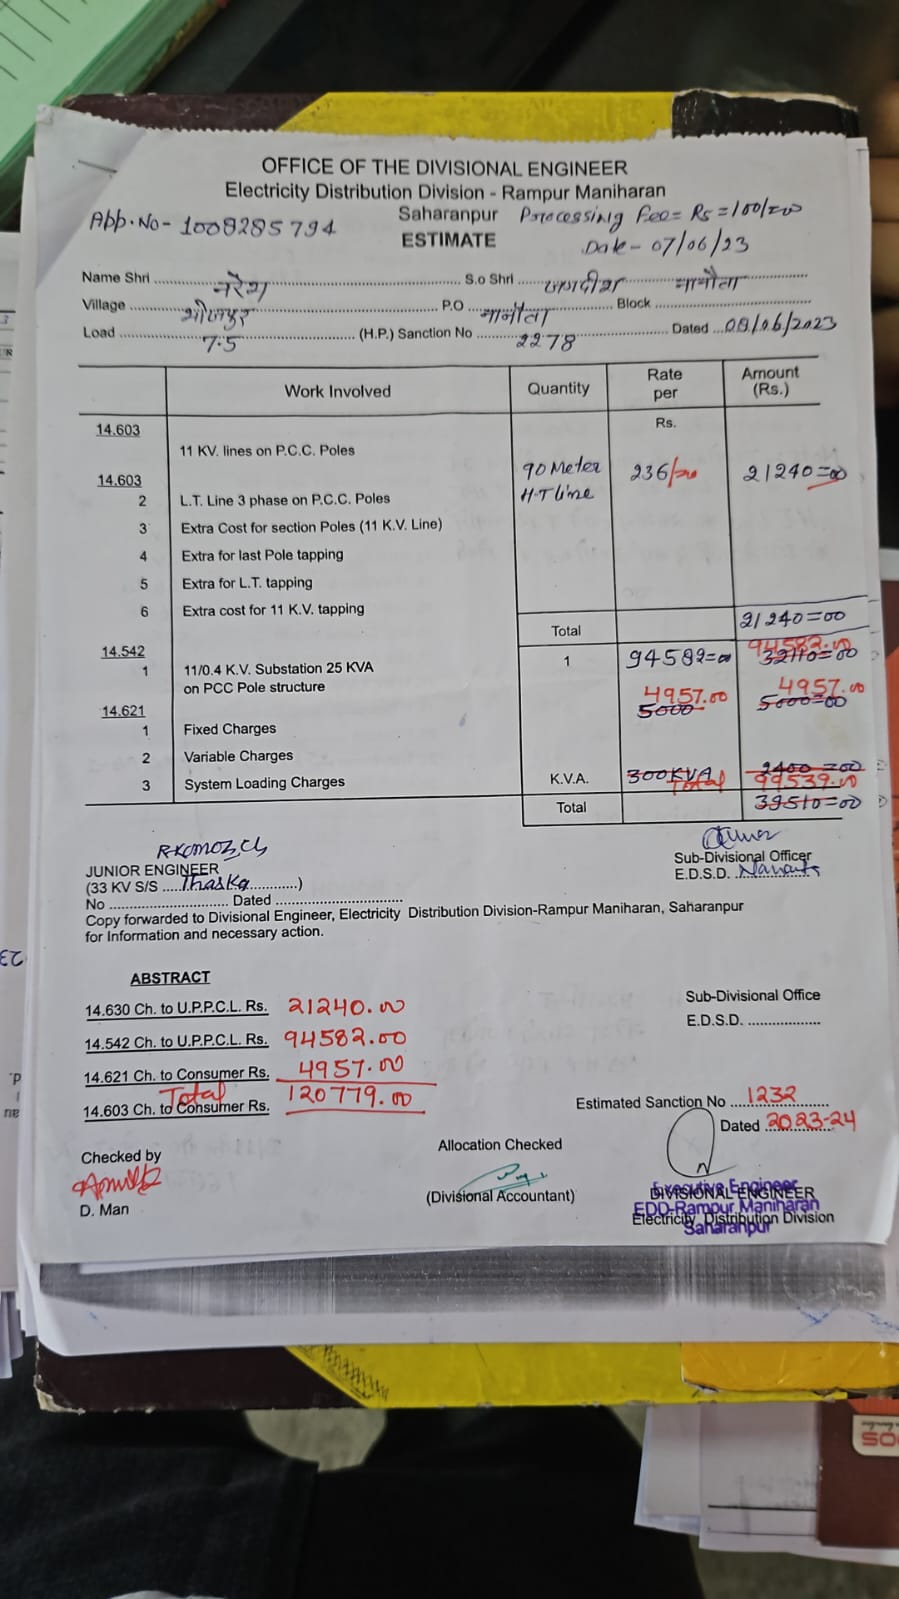 OFFICE OF THE DIVISIONAL ENGINEER
Electricity Distribution Division - Rampur Maniharan
App.No- 1008285794 Saharanpur Processing Fee= Rs=100/=00
ESTIMATE Date- 07/06/23
Name Shri नरेश S.o Shri जगदीश नानौता
Village भोजपुर P.O नानौता Block
Load 7.5 (H.P.) Sanction No 2278 Dated 08/06/2023
Work Involved Quantity Rate per Amount (Rs.)
14.603 Rs.
11 KV. lines on P.C.C. Poles
14.603 90 Meter 236/=00 21240=00
2 L.T. Line 3 phase on P.C.C. Poles H.T line
3 Extra Cost for section Poles (11 K.V. Line)
4 Extra for last Pole tapping
5 Extra for L.T. tapping
6 Extra cost for 11 K.V. tapping
Total 21240=00
14.542 94582.00
1 11/0.4 K.V. Substation 25 KVA 1 94582=00 32110=00
on PCC Pole structure 4957.00 4957.00
14.621 5000 5000=00
1 Fixed Charges
2 Variable Charges
3 System Loading Charges K.V.A. 300KVA 2400=00
Total 99539.00
Total 39510=00
JUNIOR ENGINEER Sub-Divisional Officer
(33 KV S/S Thaska) E.D.S.D.
No Dated
Copy forwarded to Divisional Engineer, Electricity Distribution Division-Rampur Maniharan, Saharanpur
for Information and necessary action.
ABSTRACT
14.630 Ch. to U.P.P.C.L. Rs. 21240.00 Sub-Divisional Office
14.542 Ch. to U.P.P.C.L. Rs. 94582.00 E.D.S.D.
14.621 Ch. to Consumer Rs. 4957.00
Total 120779.00
14.603 Ch. to Consumer Rs.
Estimated Sanction No 1232
Dated 2023-24
Checked by Allocation Checked
D. Man (Divisional Accountant)
DIVISIONAL ENGINEER
Electricity Distribution Division
Executive Engineer
EDD-Rampur Maniharan
Saharanpur